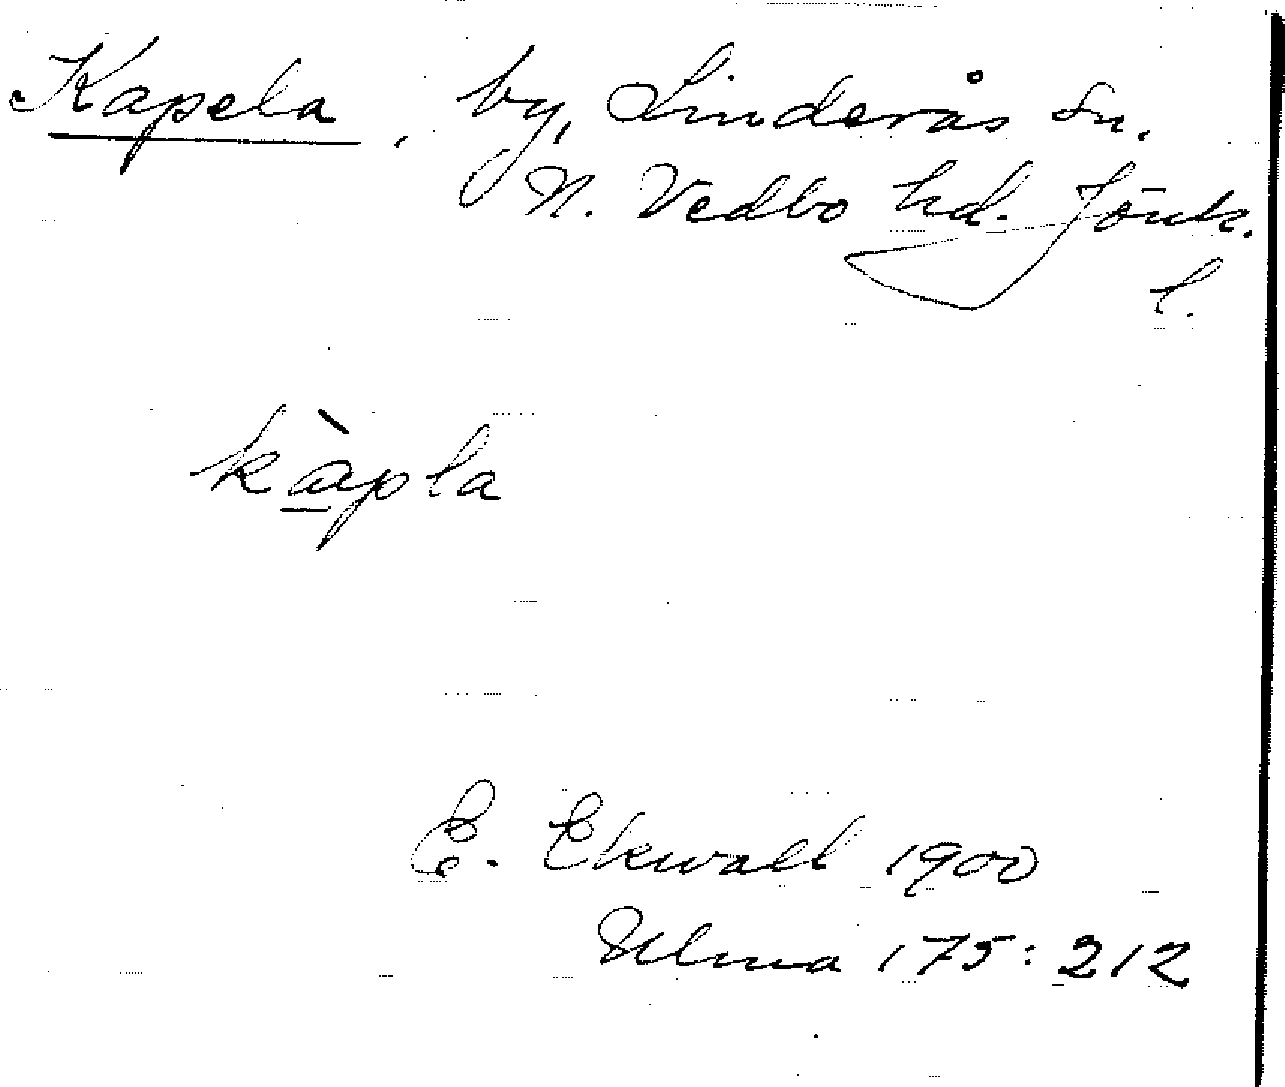 Kapela, by, Linderås sn.
N. Vedbo hd. Jönk.
l.
kàpla
E. Ekwall 1900
Ulma 175:212